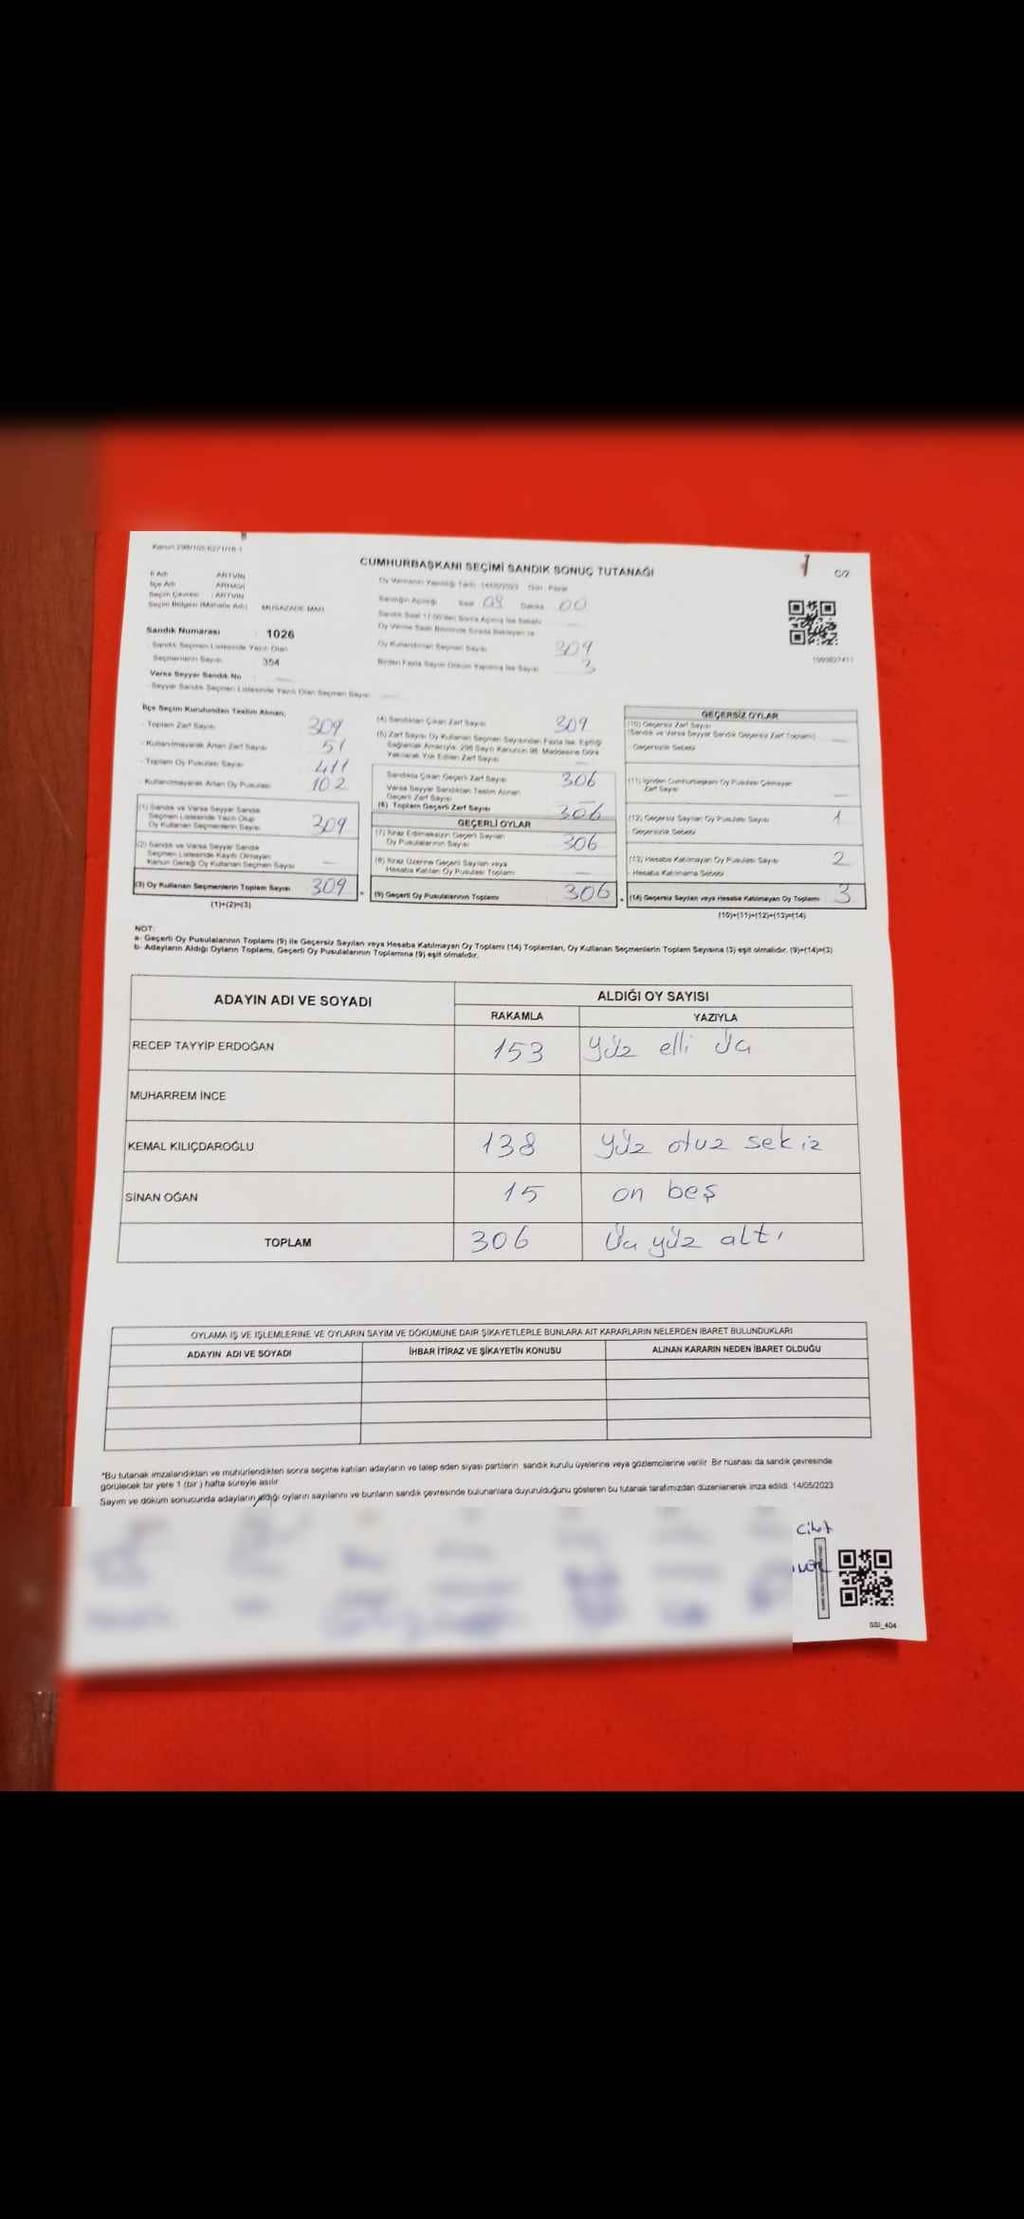 CUMHURBAŞKANI SEÇİMİ SANDIK SONUÇ TUTANAĞI
C/2
İl Adı ARTVİN
İlçe Adı ARHAVİ
Seçim Çevresi ARTVİN
Seçim Bölgesi (Mahalle Adı) MUSAZADE MAH.
Sandık Numarası : 1026
Sandık Seçmen Listesinde Yazılı Olan
Seçmenlerin Sayısı 354
Varsa Seyyar Sandık No
- Seyyar Sandık Seçmen Listesinde Yazılı Olan Seçmen Sayısı
Oy Vermenin Yapıldığı Tarih 14/05/2023 Gün Pazar
Sandığın Açılışı Saat 08 Dakika 00
Oy Kullandırılan Seçmen Sayısı 309
Birden Fazla Sayım Döküm Yapılmış İse Sayısı 3
İlçe Seçim Kurulundan Teslim Alınan;
- Toplam Zarf Sayısı 309
- Kullanılmayarak Artan Zarf Sayısı 51
- Toplam Oy Pusulası Sayısı 411
- Kullanılmayarak Artan Oy Pusulası 102
(1) Sandık ve Varsa Seyyar Sandık
Seçmen Listesinde Yazılı Olup
Oy Kullanan Seçmenlerin Sayısı 309
(2) Sandık ve Varsa Seyyar Sandık
Seçmen Listesinde Kayıtlı Olmayan
Kanun Gereği Oy Kullanan Seçmen Sayısı
(3) Oy Kullanan Seçmenlerin Toplam Sayısı 309
(1)+(2)=(3)
(4) Sandıktan Çıkan Zarf Sayısı 309
(5) Zarf Sayısı Oy Kullanan Seçmen Sayısından Fazla İse, Eşitliği
Sağlamak Amacıyla, 298 Sayılı Kanunun 98. Maddesine Göre
Yakılarak Yok Edilen Zarf Sayısı
Sandıkta Çıkan Geçerli Zarf Sayısı 306
Varsa Seyyar Sandıktan Teslim Alınan
Geçerli Zarf Sayısı
(6) Toplam Geçerli Zarf Sayısı 306
GEÇERLİ OYLAR
(7) İtiraz Edilmeksizin Geçerli Sayılan
Oy Pusulalarının Sayısı 306
(8) İtiraz Üzerine Geçerli Sayılan veya
Hesaba Katılan Oy Pusulası Toplamı
(9) Geçerli Oy Pusulalarının Toplamı 306
GEÇERSİZ OYLAR
(10) Geçersiz Zarf Sayısı
(Sandık ve Varsa Seyyar Sandık Geçersiz Zarf Toplamı)
- Geçersizlik Sebebi
(11) İçinden Cumhurbaşkanı Oy Pusulası Çıkmayan
Zarf Sayısı
(12) Geçersiz Sayılan Oy Pusulası Sayısı 1
- Geçersizlik Sebebi
(13) Hesaba Katılmayan Oy Pusulası Sayısı 2
- Hesaba Katılmama Sebebi
(14) Geçersiz Sayılan veya Hesaba Katılmayan Oy Toplamı 3
(10)+(11)+(12)+(13)=(14)
NOT:
a- Geçerli Oy Pusulalarının Toplamı (9) ile Geçersiz Sayılan veya Hesaba Katılmayan Oy Toplamı (14) Toplamları, Oy Kullanan Seçmenlerin Toplam Sayısına (3) eşit olmalıdır. (9)+(14)=(3)
b- Adayların Aldığı Oyların Toplamı, Geçerli Oy Pusulalarının Toplamına (9) eşit olmalıdır.
ADAYIN ADI VE SOYADI ALDIĞI OY SAYISI
RAKAMLA YAZIYLA
RECEP TAYYİP ERDOĞAN 153 yüz elli üç
MUHARREM İNCE
KEMAL KILIÇDAROĞLU 138 yüz otuz sekiz
SİNAN OĞAN 15 on beş
TOPLAM 306 üç yüz altı
OYLAMA İŞ VE İŞLEMLERİNE VE OYLARIN SAYIM VE DÖKÜMÜNE DAİR ŞİKAYETLERLE BUNLARA AİT KARARLARIN NELERDEN İBARET BULUNDUKLARI
ADAYIN ADI VE SOYADI İHBAR İTİRAZ VE ŞİKAYETİN KONUSU ALINAN KARARIN NEDEN İBARET OLDUĞU
*Bu tutanak imzalandıktan ve mühürlendikten sonra seçime katılan adayların ve talep eden siyasi partilerin sandık kurulu üyelerine veya gözlemcilerine verilir. Bir nüshası da sandık çevresinde
görülecek bir yere 1 (bir) hafta süreyle asılır.
Sayım ve döküm sonucunda adayların aldığı oyların sayılarını ve bunların sandık çevresinde bulunanlara duyurulduğunu gösteren bu tutanak tarafımızdan düzenlenerek imza edildi. 14/05/2023
SSI_404